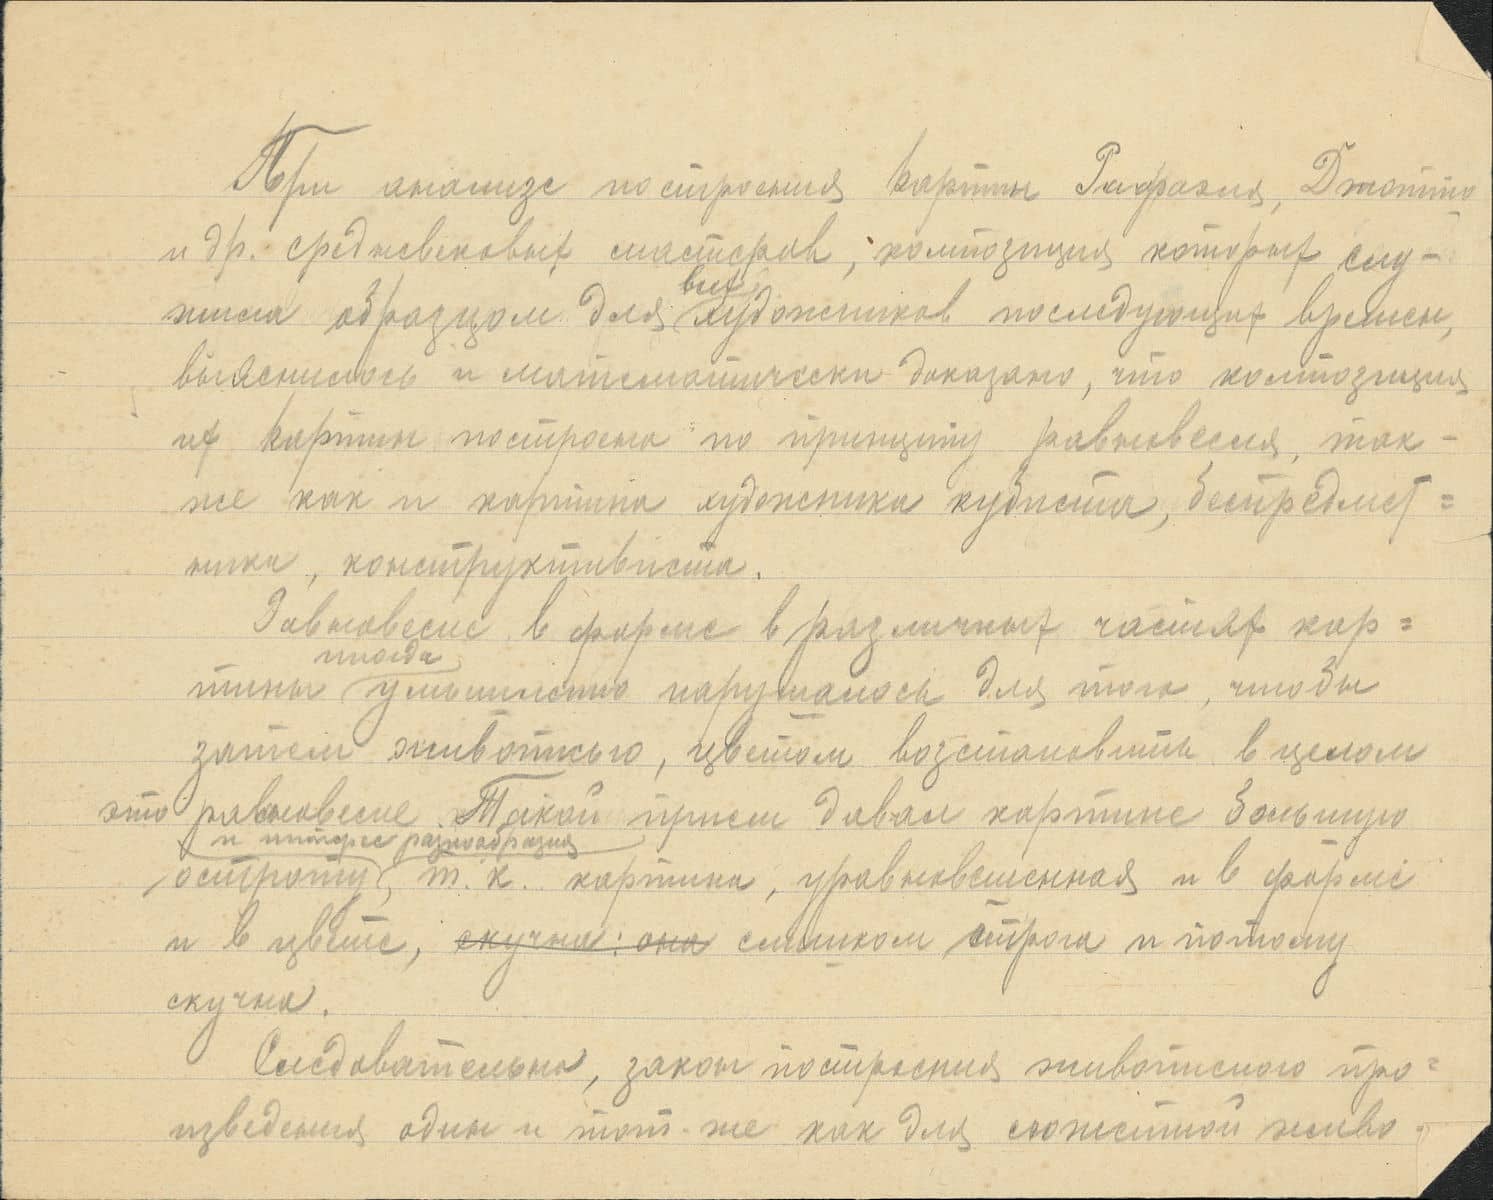 При анализе построения картин Рафаэля, Джотто
и др. средневековых мастеров, композиция которых слу-
жила образцом для всех художников последующих времен,
выяснилось и математически доказано, что композиция
их картин построена по принципу равновесия, так-
же как и картина художника кубиста, беспредмет=
ника, конструктивиста.
Равновесие в форме в различных частях кар=
тины иногда умышленно нарушалось для того, чтобы
затем живописью, цветом возстановить в целом
это равновесие. Такой прием давал картине большую
остроту и интерес разнообразия, т.к. картина, уравновешенная и в форме
и в цвете, скучна: она слишком строга и потому
скучна.
Следовательно, закон построения живописного про=
изведения один и тот-же как для сюжетной живо-